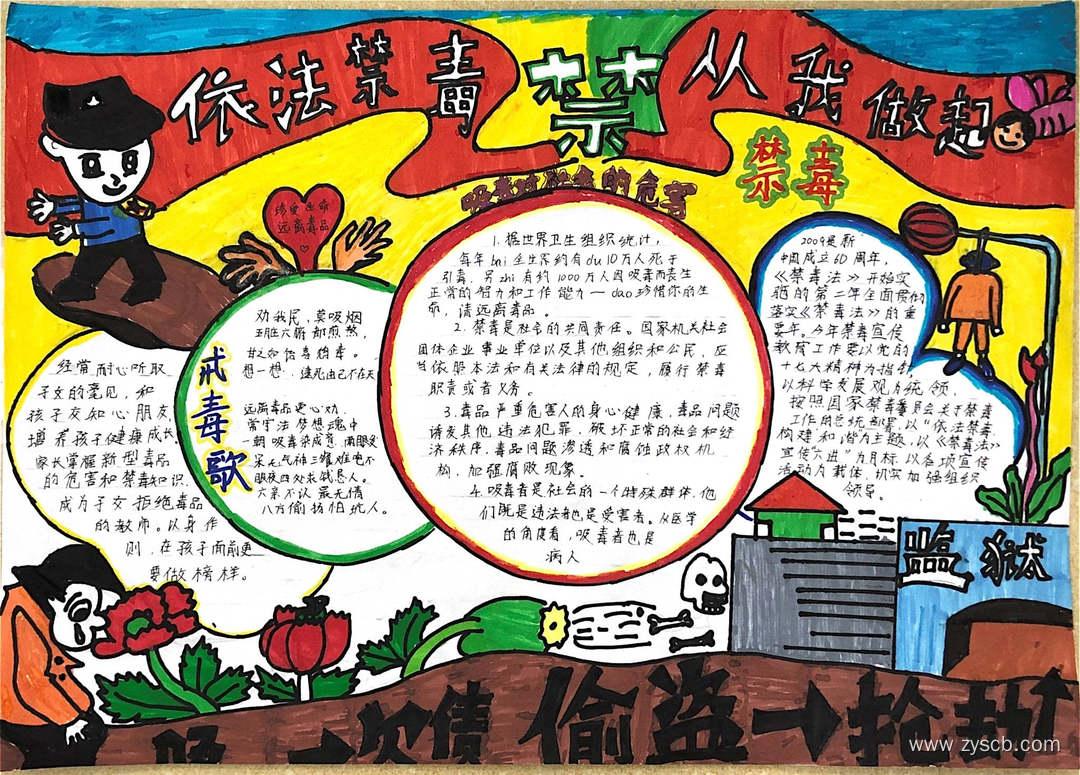 依法禁毒
禁
从我做起
禁毒
吸毒对社会的危害
珍爱生命
远离毒品
1.据世界卫生组织统计，
每年bai全世界约有du10万人死于
引毒。另zhi有约1000万人因吸毒而丧生
正常的智力和工作能力一dao珍惜你的生
命，请远离毒品。
2.禁毒是社会的共同责任。国家机关社会
团体企业事业单位以及其他组织和公民，应
当依照本法和有关法律的规定，履行禁毒
职责或者义务。
3.毒品严重危害人的身心健康，毒品问题
诱发其他违法犯罪，破坏正常的社会和经
济秩序，毒品问题渗透和腐蚀政权机
构，加强腐败现象。
4.吸毒者是社会的一个特殊群体，他
们既是违法者也是受害者。从医学
的角度看，吸毒者也是
病人
2009是新
中国成立60周年，
《禁毒法》开始实
施的第二年全面贯彻
落实《禁毒法》的重
要年。今年禁毒宣传
教育工作要以党的
十七大精神为指针
以科学发展观为统领，
按照国家禁毒委员会关于禁毒
工作的总统部署，以"依法禁毒，
构建和谐"为主题，以《禁毒法》
宣传"六进"为目标，以各项宣传
活动为载体，切实加强组织
领导。
戒毒歌
劝我民，莫吸烟
五脏六腑都煎熬，
甘之如饴毒稍毒。
想一想，速死由己不在天
远离毒品是心劝，
常守法梦想魂中
一朝吸毒染成瘾，两眼
呆无气神三餐难
眼夜四处求
六亲不认最无情
八方偷坊怕坑人。
经常耐心听取
子女的意见，和
孩子交知心朋友
增养孩子健康成长，
家长掌握新型毒品
的危害和禁毒知识，
成为子女拒绝毒品
的教师。以身作
则，在孩子面前更
要做榜样。
监狱
欠债 偷盗→抢劫
www.zyscb.com